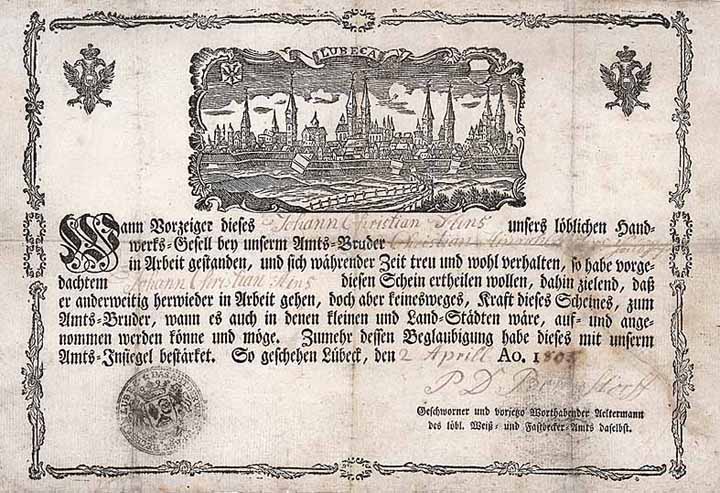 LUBECA
Wann Vorzeiger dieses Johann Christian unsers löblichen Hand-
werks-Gesell bey unserm Amts-Bruder Christian
in Arbeit gestanden, und sich währender Zeit treu und wohl verhalten, so habe vorge-
dachtem Johann Christian diesen Schein ertheilen wollen, dahin zielend, daß
er anderweitig herwieder in Arbeit gehen, doch aber keinesweges, Kraft dieses Scheines, zum
Amts-Bruder, wann es auch in denen kleinen und Land-Städten wäre, auf- und ange-
nommen werden könne und möge. Zumehr dessen Beglaubigung habe dieses mit unserm
Amts-Insiegel bestärket. So geschehen Lübeck, den 2 Aprill Ao. 1805
P. D.
Geschworner und vorjetzo Worthabender Aeltermann
des löbl. Weiß- und Fastbecker-Amts daselbst.